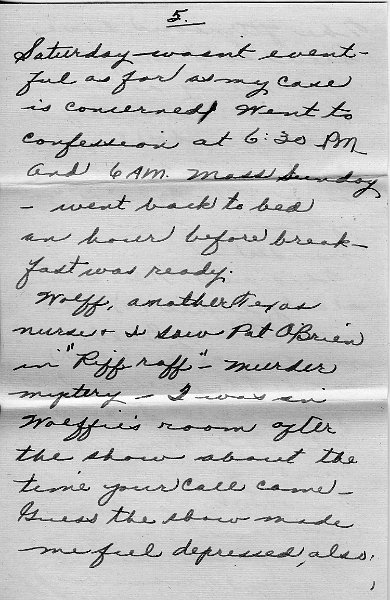 5.
Saturday wasn't event-
ful as far as my case
is concerned. Went to
confession at 6:30 PM
and 6 AM. Mass Sunday
- went back to bed
an hour before break-
fast was ready.
Wolff, another Texas
nurse & I saw Pat O'Brien
in "Riff raff" - murder
mystery - I was in
Wolffie's room after
the show about the
time your call came -
Guess the show made
me feel depressed, also.